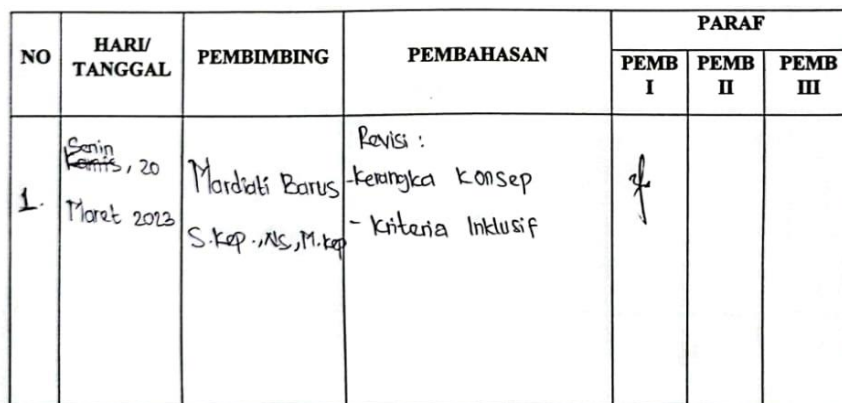 NO
HARI/
TANGGAL
PEMBIMBING
PEMBAHASAN
PARAF
PEMB
I
PEMB
II
PEMB
III
1.
Senin
Kamis, 20
Maret 2023
Mardiati Barus
S.Kep.,NS,M.Kep
Revisi :
-Kerangka Konsep
- Kriteria Inklusif